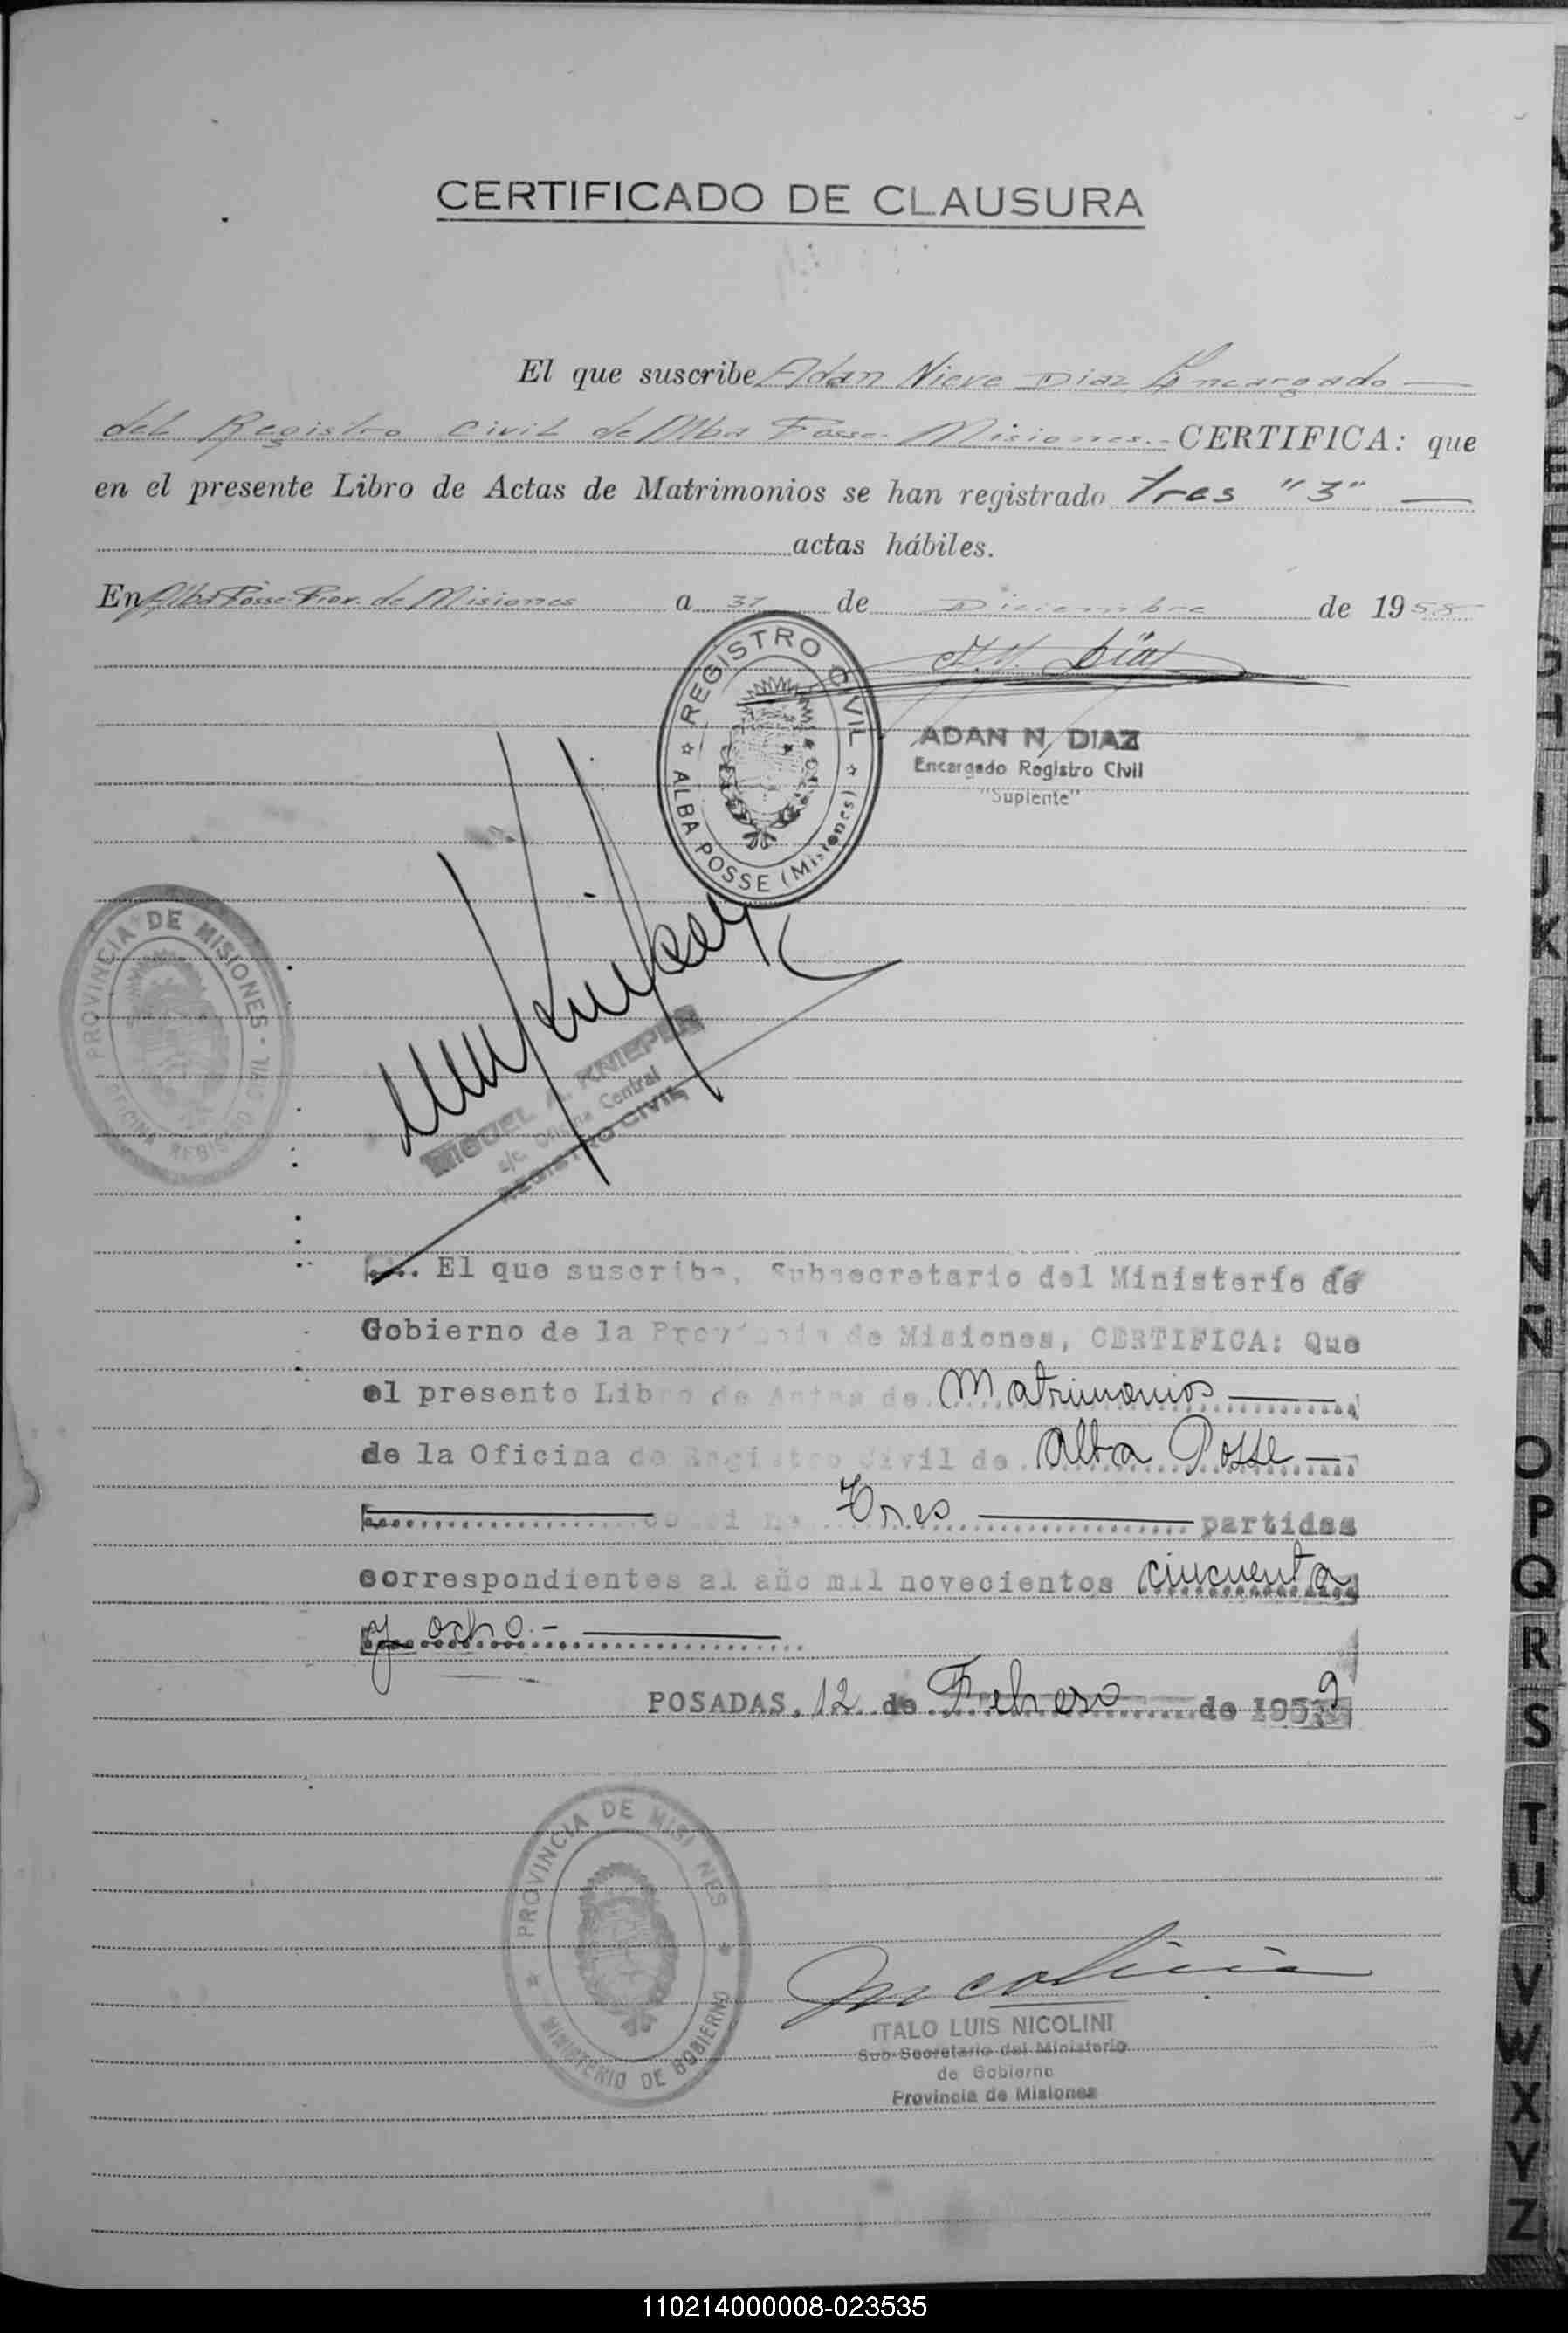 CERTIFICADO DE CLAUSURA
El que suscribe Adan Nieve Diaz Encargado
del Registro Civil de Alba Posse. Misiones.- CERTIFICA: que
en el presente Libro de Actas de Matrimonios se han registrado tres "3"
actas hábiles.
En Alba Posse. Prov. de Misiones a 31 de Diciembre de 1958
REGISTRO CIVIL
ALBA POSSE (Misiones)
A. N. Diaz
ADAN N. DIAZ
Encargado Registro Civil
"Suplente"
PROVINCIA DE MISIONES
OFICINA REGISTRO
MIGUEL A. KNIEPER
a/c. Oficina Central
REGISTRO CIVIL
El que suscribe, Subsecretario del Ministerio de
Gobierno de la Provincia de Misiones, CERTIFICA: Que
el presente Libro de Actas de Matrimonios
de la Oficina de Registro Civil de Alba Posse
Tres partidas
correspondientes al año mil novecientos cincuenta
y ocho.-
POSADAS, 12 de Febrero de 1959
PROVINCIA DE MISIONES
MINISTERIO DE GOBIERNO
Nicolini
ITALO LUIS NICOLINI
Sub-Secretario del Ministerio
de Gobierno
Provincia de Misiones
D
E
F
G
H
I
J
K
L
LL
M
N
Ñ
O
P
Q
R
S
T
U
V
W
X
Y
Z
110214000008-023535